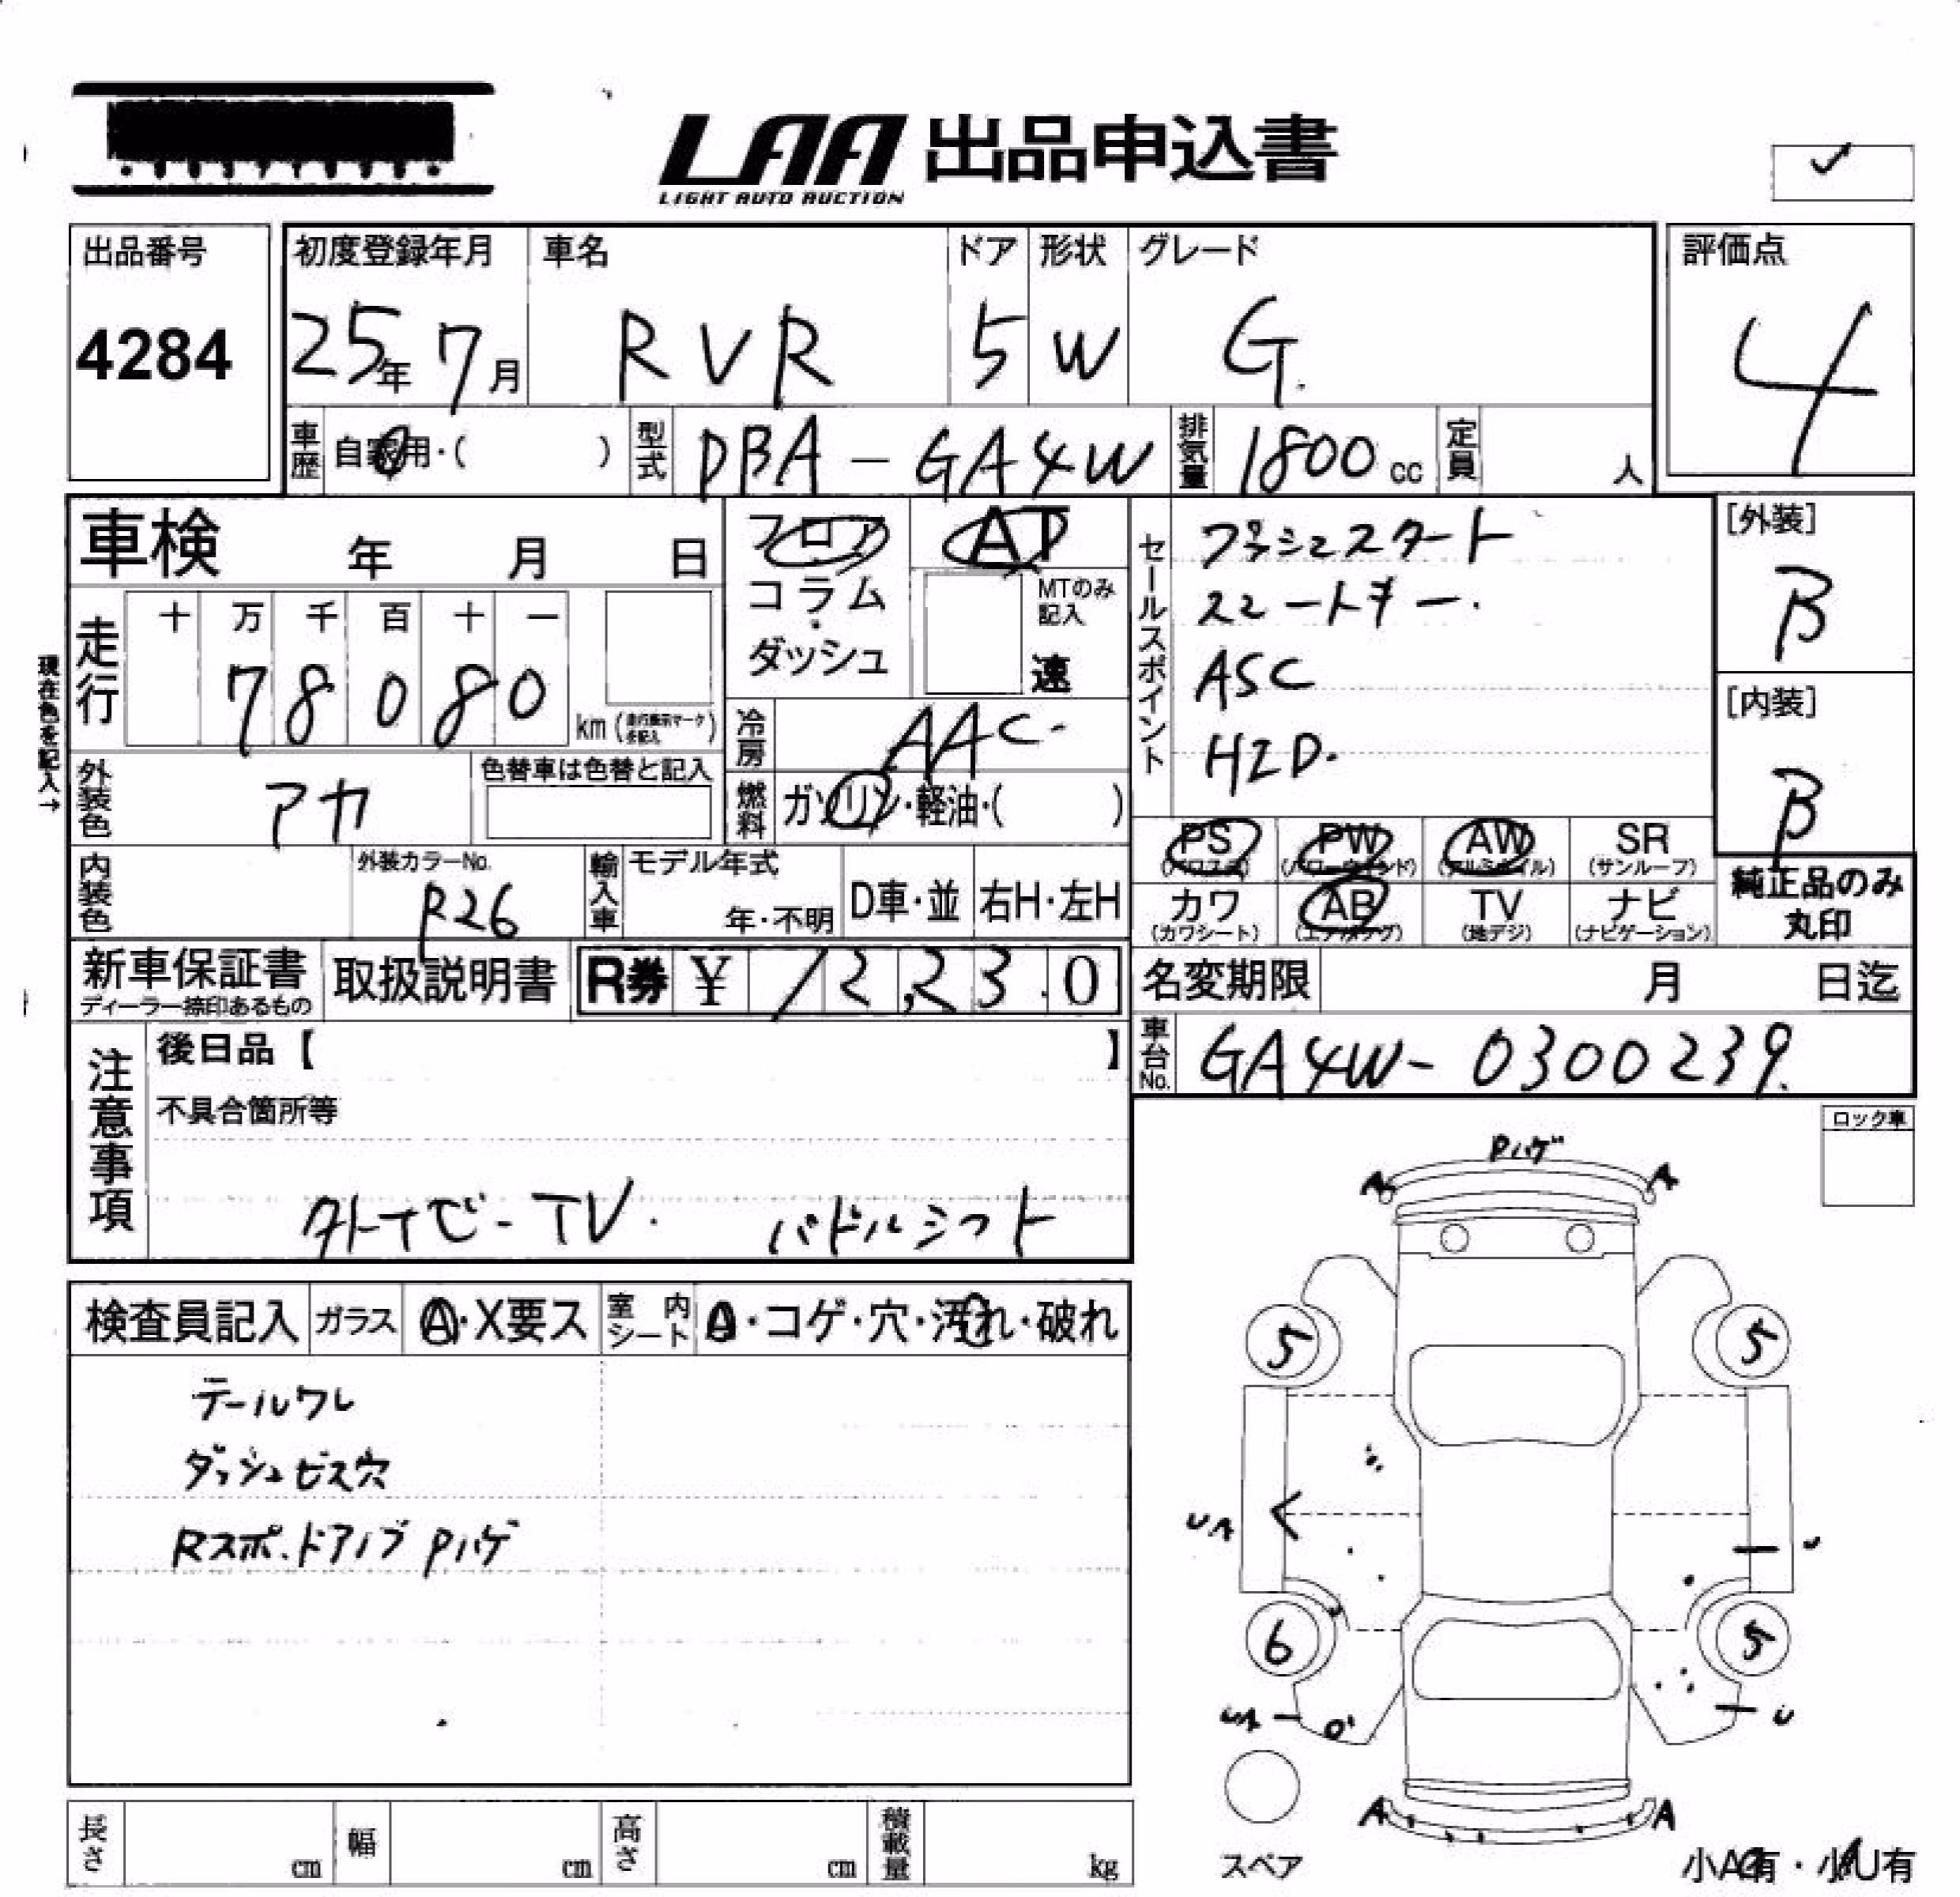 LAA 出品申込書
LIGHT AUTO AUCTION
出品番号
4284
初度登録年月
25年 7月
車名
RVR
ドア
5
形状
W
グレード
G.
評価点
4
車歴 自家用・( )
型式 DBA-GA4W
排気量 1800 cc
定員 人
車検 年 月 日
フロア
コラム
・
ダッシュ
AT
MTのみ
記入
速
セールスポイント
プッシュスタート
スマートキー.
ASC
HID.
[外装]
B
[内装]
B
現在色を記入→
走行
十 万 千 百 十 一
7 8 0 8 0
km (走行表示マークを記入)
冷房 AAC-
燃料 ガソリン・軽油・( )
外装色 アカ
色替車は色替と記入
PS (パワステ)
PW (パワーウインド)
AW (アルミホイル)
SR (サンルーフ)
カワ (カワシート)
AB (エアバッグ)
TV (地デジ)
ナビ (ナビゲーション)
純正品のみ
丸印
内装色
外装カラーNo.
P26
輸入車
モデル年式
年・不明
D車・並
右H・左H
新車保証書
ディーラー捺印あるもの
取扱説明書
R券 ¥ 12,230
名変期限 月 日迄
車台No. GA4W-0300239.
注意事項
後日品【 】
不具合箇所等
TV. パドルシフト
ロック車
検査員記入
ガラス A・X要ス
室内シート A・コゲ・穴・汚れ・破れ
テールワレ
ダッシュビス穴
Rスポ.ドアノブ Pハゲ
Pハゲ
A A
5 5
UA U
6 5
UA U
A A
スペア
小A有・小U有
長さ cm
幅 cm
高さ cm
積載量 kg